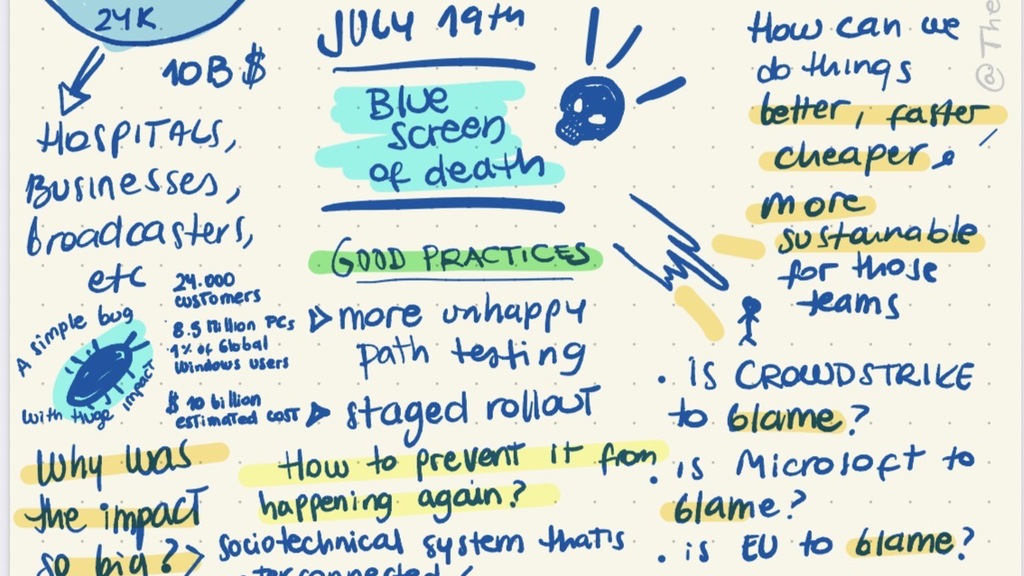 24K
10B $
HOSPITALS,
Businesses,
broadcasters,
etc
24.000
customers
8.5 Million PCs
1% of Global
Windows users
$ 10 billion
estimated cost
A simple bug
with Huge impact
Why was
the impact
so big?
JULY 19th
Blue
screen
of death
GOOD PRACTICES
more unhappy
path testing
staged rollout
How to prevent it from
happening again?
Sociotechnical system that's
How can we
do things
better, faster
cheaper &
more
sustainable
for those
teams
• Is CROWDSTRIKE
to blame?
• is Microsoft to
blame?
• is EU to blame?
@The